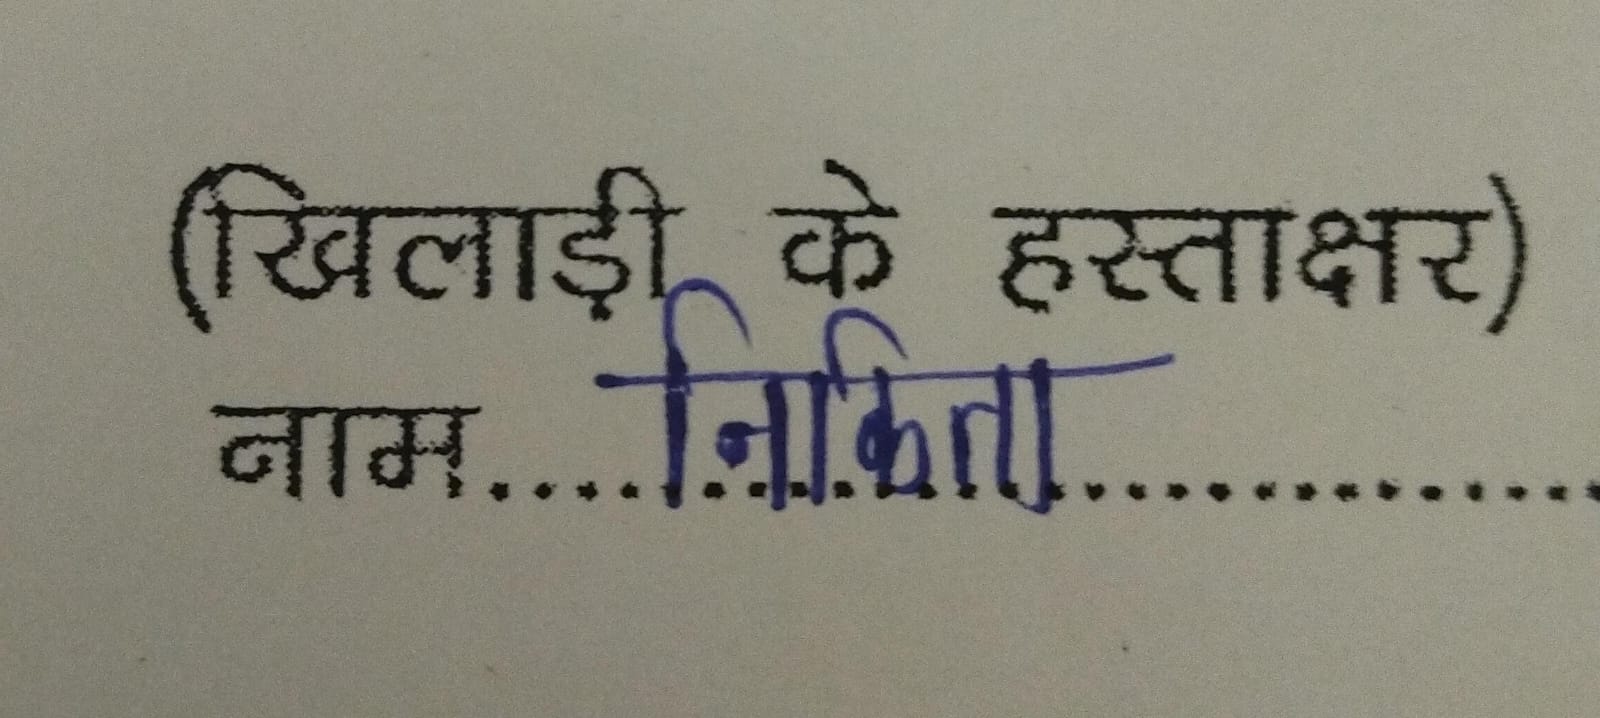 (खिलाड़ी के हस्ताक्षर)
नाम....निकिता.............